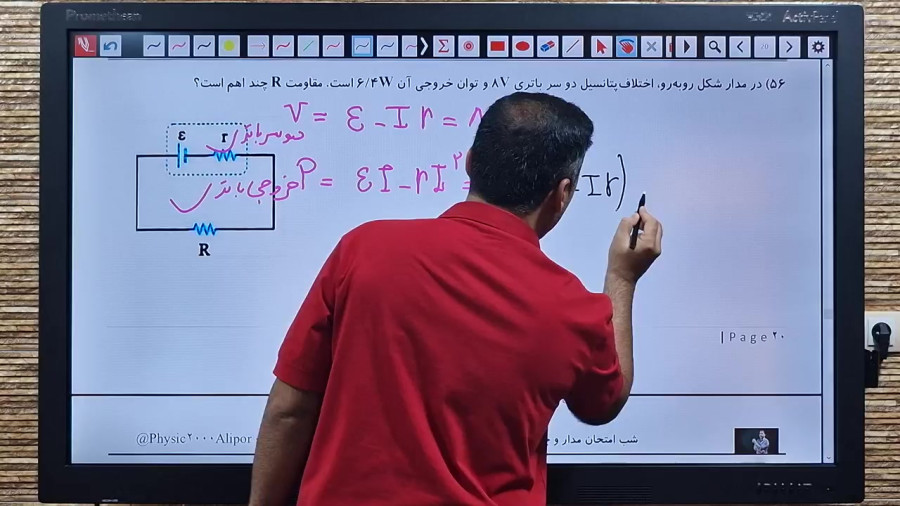 Promethean ActivPanel
۵۶) در مدار شکل روبه‌رو، اختلاف پتانسیل دو سر باتری ۸V و توان خروجی آن ۶/۴W است. مقاومت R چند اهم است؟
V = ε - I r = ۸
دو سر باتری
ε r
P خروجی باتری = εI - rI² =
- I r)
R
| P a g e ۲۰
@Physic۲۰۰۰Alipor
شب امتحان مدار و